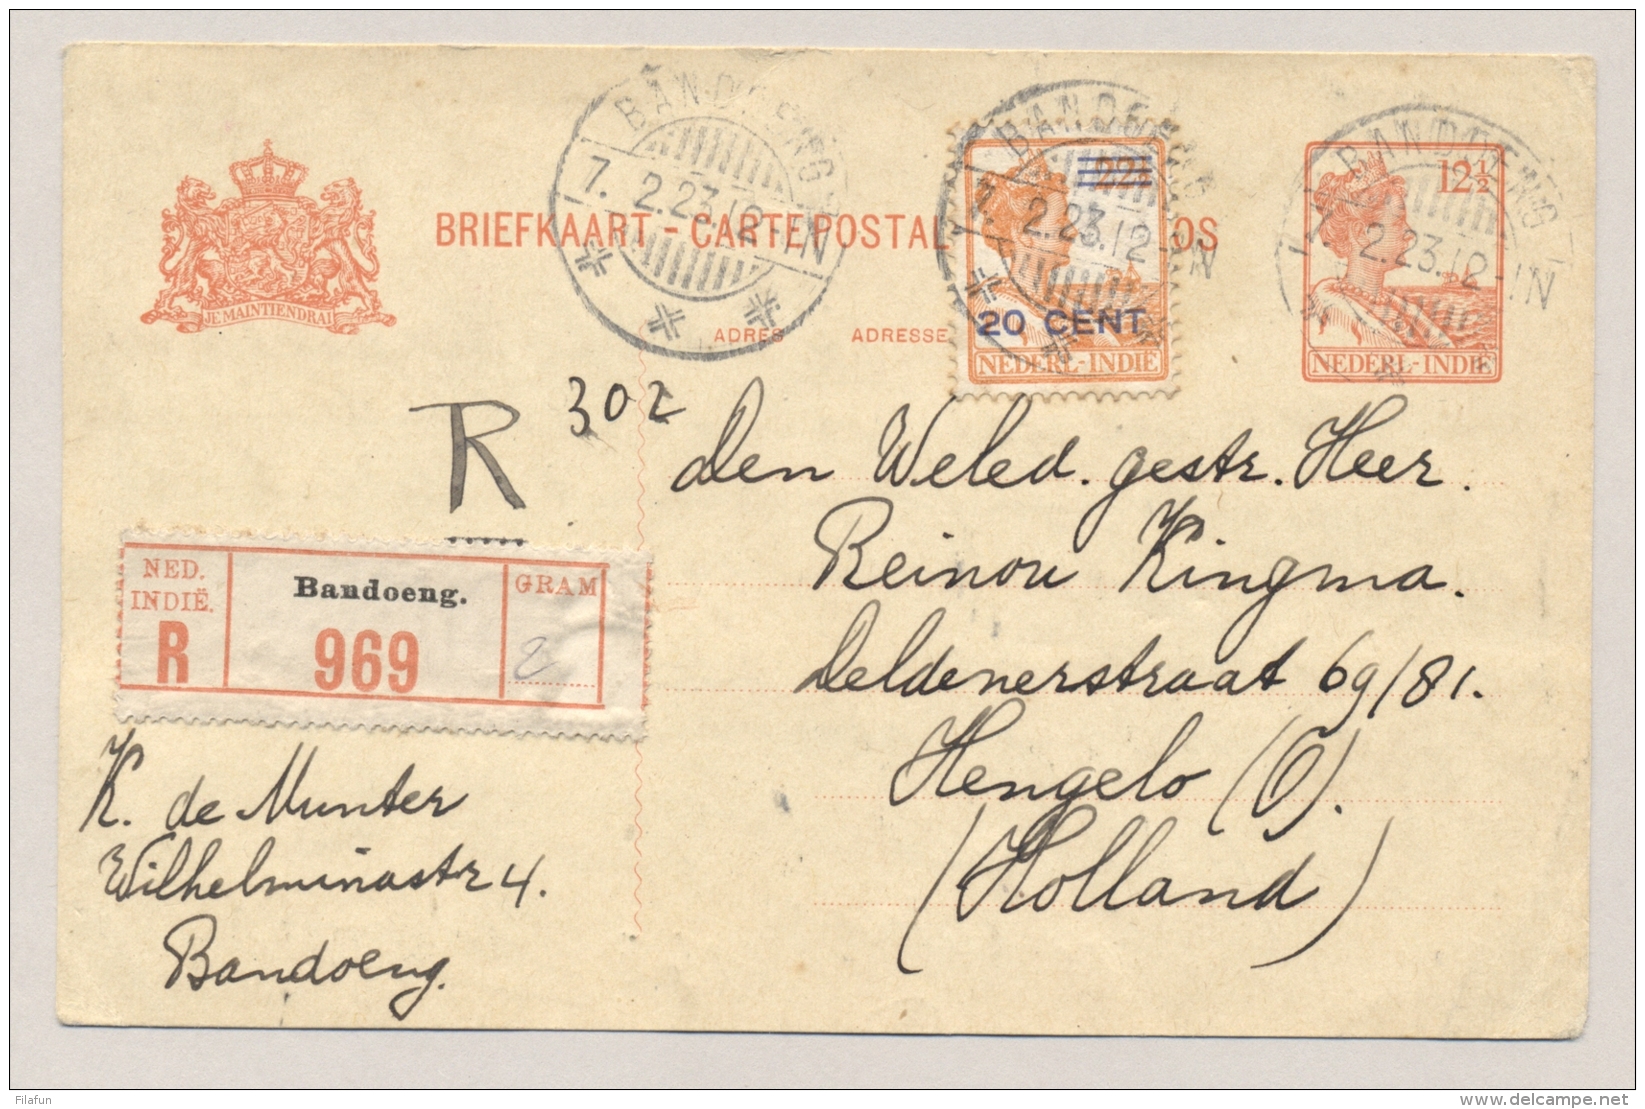 BANDOENG
7. 2.23.12-1N
BANDOENG
7. 2.23.12-1N
BANDOENG
7. 2.23.12-1N
22½
12½
BRIEFKAART - CARTE POSTALE
OS
JE MAINTIENDRAI
ADRES ADRESSE
20 CENT
NEDERL-INDIË
NEDERL-INDIË
R 302
den Weled. gestr. Heer.
Reinou Kingma.
Deldenerstraat 69/81.
Hengelo (O).
(Holland)
NED.
INDIË.
R
Bandoeng.
969
GRAM
2
K. de Munter
Wilhelminastr 4.
Bandoeng.
Filafun
www.delcampe.net